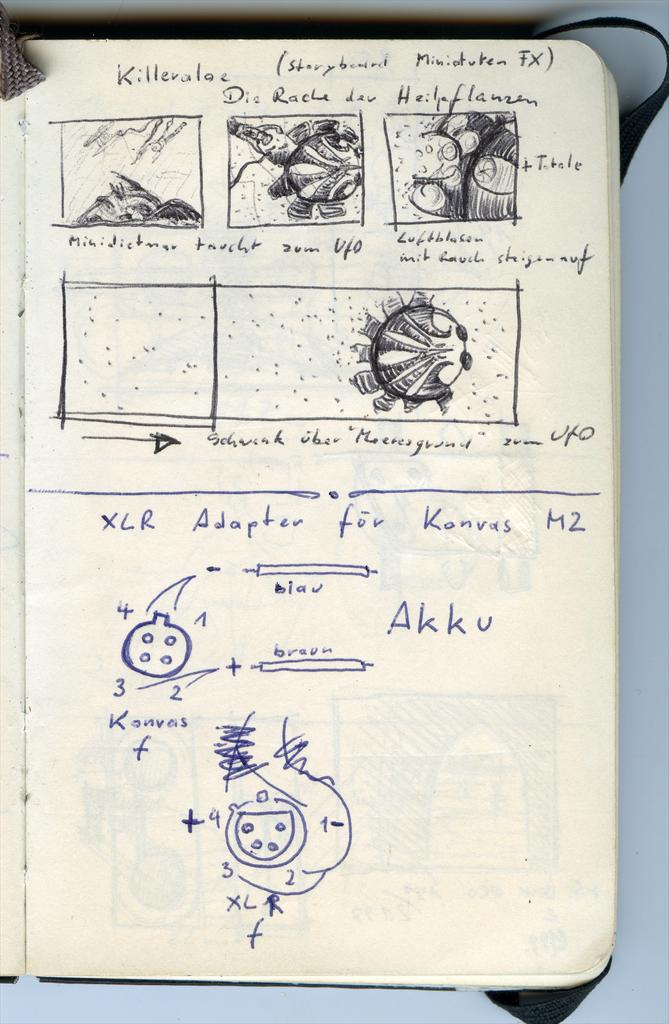 Killeralge (Storyboard Miniaturen FX)
Die Rache der Heilpflanzen
+ Totale
Minidietmar taucht zum UFO
Luftblasen
mit Rauch steigen auf
Schwenk über "Meeresgrund" zum UFO
XLR Adapter für Konvas M2
- blau
4 1
Akku
braun
+
3 2
Konvas
f
+ 4 1 -
3 2
XLR
f